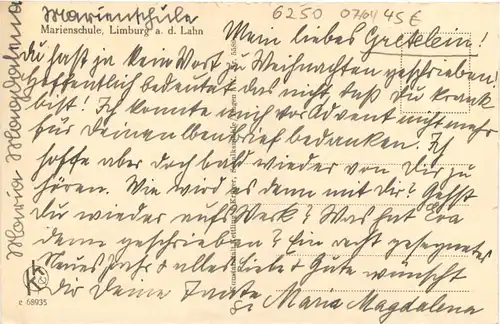 Marienschule
6250 07/01 45 €
Marienschule, Limburg a. d. Lahn
Mein liebes Gretelein!
du hast ja kein Wort zu Weihnachten geschrieben!
Hoffentlich bedeutet das nicht, daß du krank
bist! Ich konnte mich vor Advent nicht mehr
für deinen Brief bedanken. Ich
hoffe aber doch bald wieder von Dir zu
hören. Wie wird es denn mit dir? Gehst
du wieder aufs Werk? Was hat Eva
denn geschrieben? Ein recht gesegnetes
Neues Jahr & alles Liebe & Gute wünscht
dir Deine Tante
Maria Magdalena
Maria Magdalena
c 68935